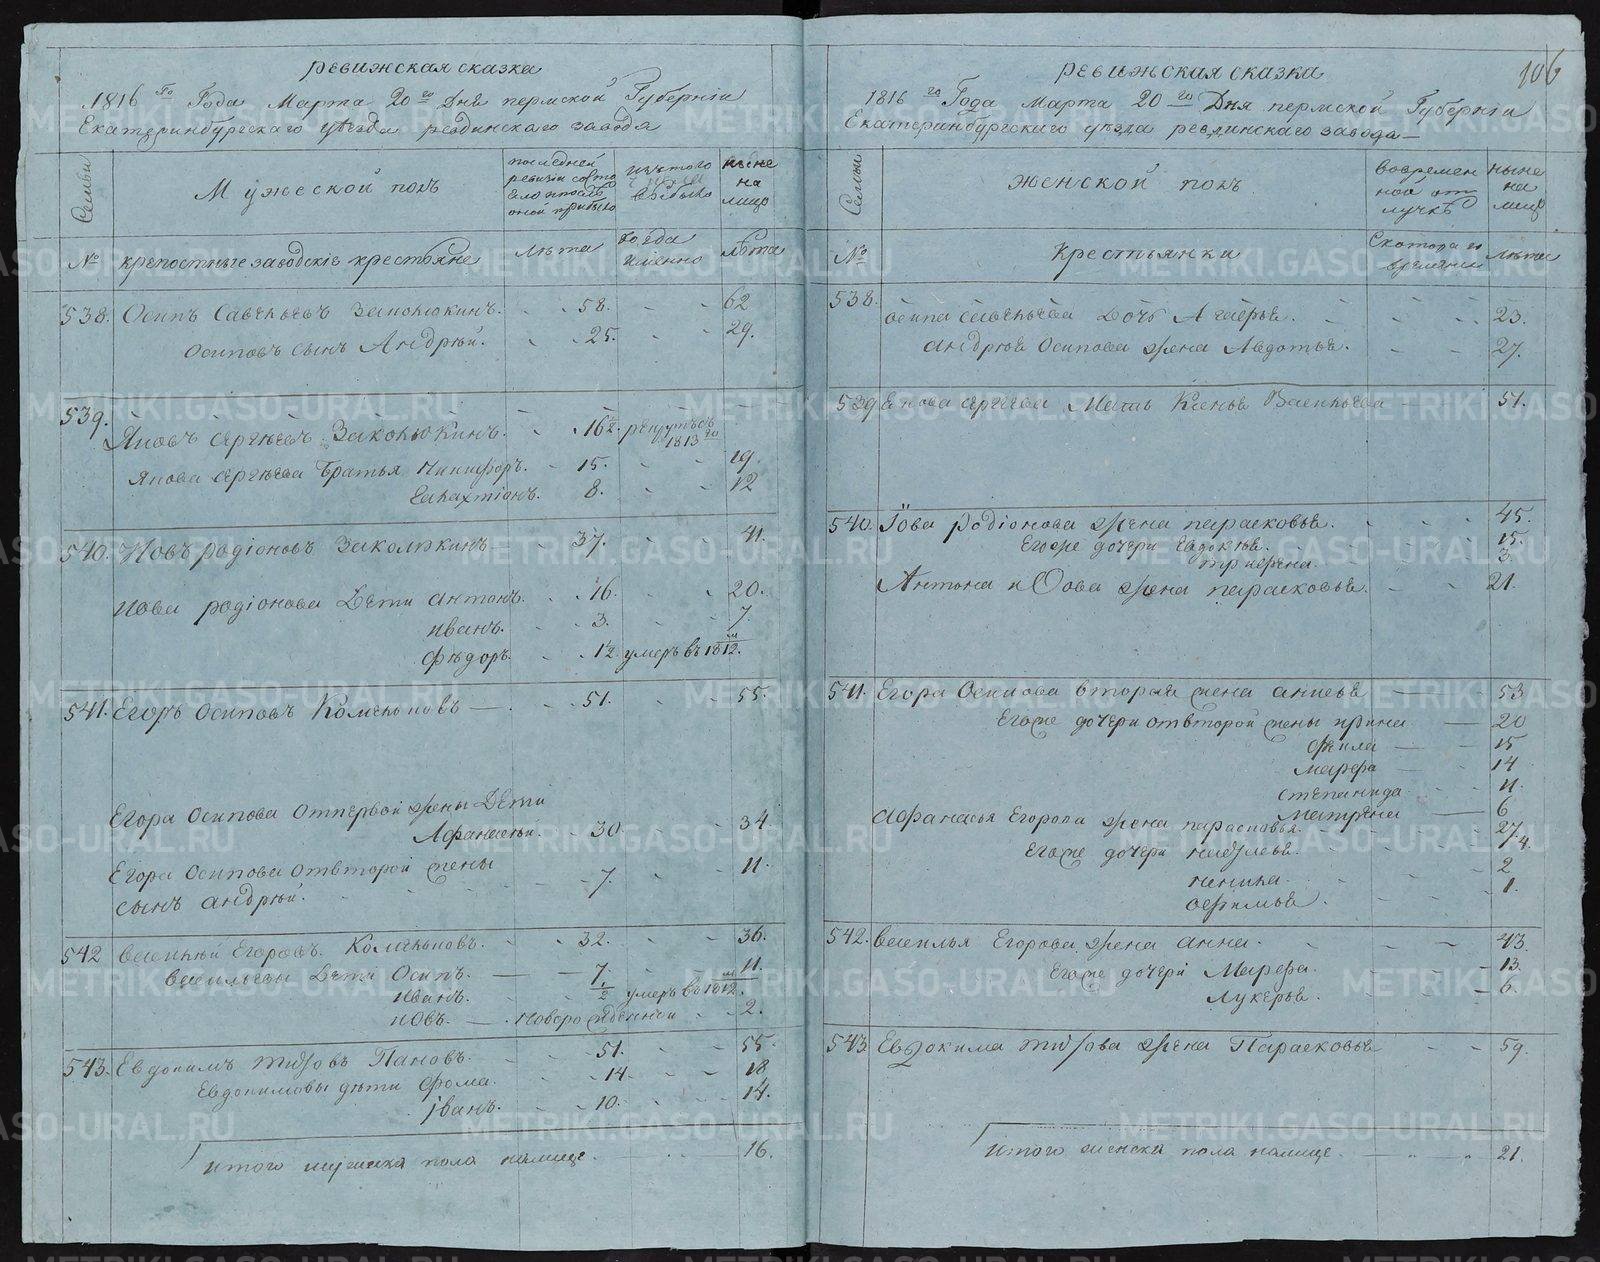 ревижская сказка
1816 го Года Марта 20 го Дня пермской Губерніи
Екатеринбургскаго уѣзда ревдинскаго завода
Семьи
Мужеской полъ
последней ревизіи состо
оной прибыло
изътого
выбыло
ныне на лицо
№ крепостные заводскіе крестьяне
лѣта
Когда именно
лѣта
538. Осипъ Савельевъ 58. 62
Осиповъ сынъ Андрѣй. 25. 29.
539. Яковъ Сергѣевъ 16 1/2. рекрутъ 1813 го
Якова Сергѣева братья Никифоръ. 15. 19.
Галахтіонъ. 8. 12
540. Иовъ родіоновъ 37. 41.
Иова родіонова Дети антонъ. 16. 20.
иванъ. 3. 7.
Фѣдоръ. 1/2 умеръ въ 1812 м.
541. Егоръ Осиповъ 51. 55.
Егора Осипова отпервой жены Дети
Афанасей. 30. 34.
Егора Осипова отвторой жены
сынъ андрѣй. 7. 11.
542 василѣй Егоровъ 32. 36.
васильевы Дети Осипъ. 7. 11.
иванъ. 1/2 умеръ въ 1812 м.
иОвъ. новорожденной 2.
543. Евдокимъ титовъ Пановъ. 51. 55.
Евдокимовы дѣти Фома. 14. 18
іванъ. 10. 14.
итого мужеска пола налице. 16.
106
ревижская сказка
1816 го Года марта 20 го Дня пермской Губерніи
Екатеринбургскаго уѣзда ревдинскаго завода
Семьи
женской полъ
вовремен ной от лучкѣ
ныне на лицо
№
Крестьянки
Скотораго времяни
лѣта
538. осипа савельева Дочь Агафья. 23.
андрѣя Осипова жена Авдотья. 27.
539 Якова сергѣева Мать Ксенья Васильева 51.
540. Іова родіонова жена парасковья. 45.
Егоже дочери Евдокѣя. 15.
3
Антона иОова жена парасковья. 21.
541. Егора Осипова вторая жена анисья 53
Егоже дочери отвторой жены ирина 20
Фекла 15
марфа 14
степанида 11.
матрена 6
Афанасья Егорова жена парасковья. 27.
Егоже дочери 4.
2
офимья. 1.
542. василья Егорова жена анна. 43.
Егоже дочери Марфа. 13.
лукерья. 6.
543 Евдокима титова жена Парасковья 59.
итого женска пола налице. 21.
METRIKI.GASO-URAL.RU